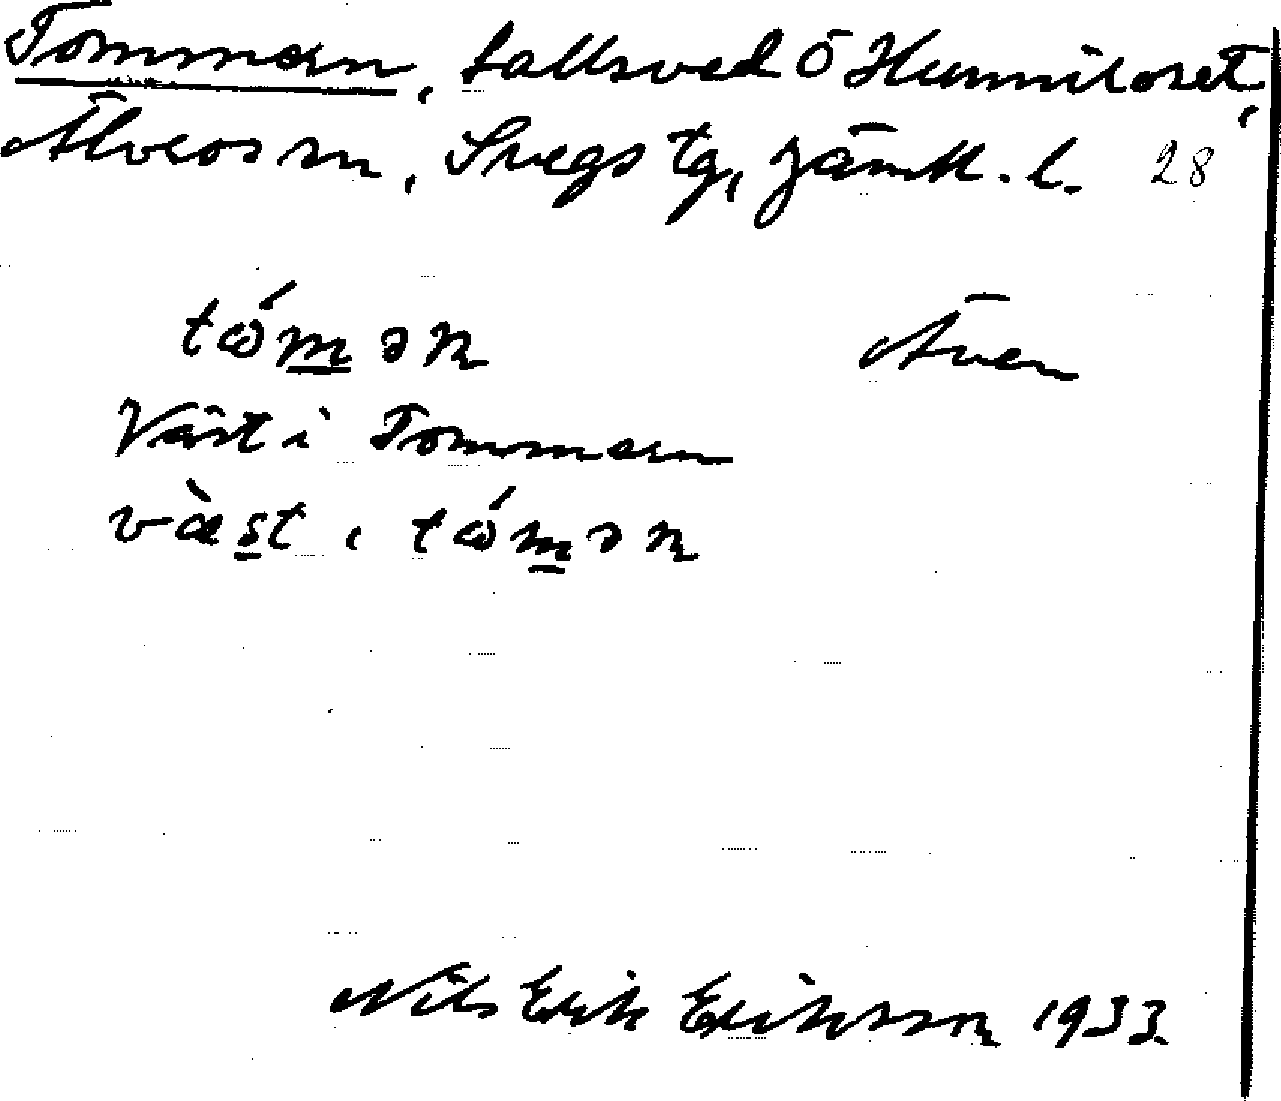 Tomman, tallsved Ö Hunniloret,
Älvros sn, Svegs tg, Jämtl. l. 28
tώm̲ən Även
Väst i Tomman
væ̀s̲t ı tώm̲ən
Nils Erik Eriksson 1933